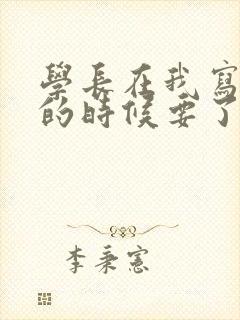 學長在我寫
的時候要了
李秉憲